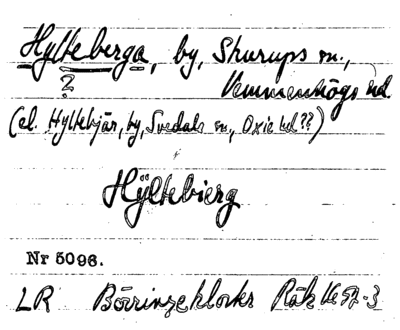 Hylteberga, by, Skurups sn.,
? Vemmenhögs hd.
(el. Hyltebjär, by, Svedala sn., Oxie hd??)
Hÿltebierg
Nr 5096.
LR Börringeklosters Räk